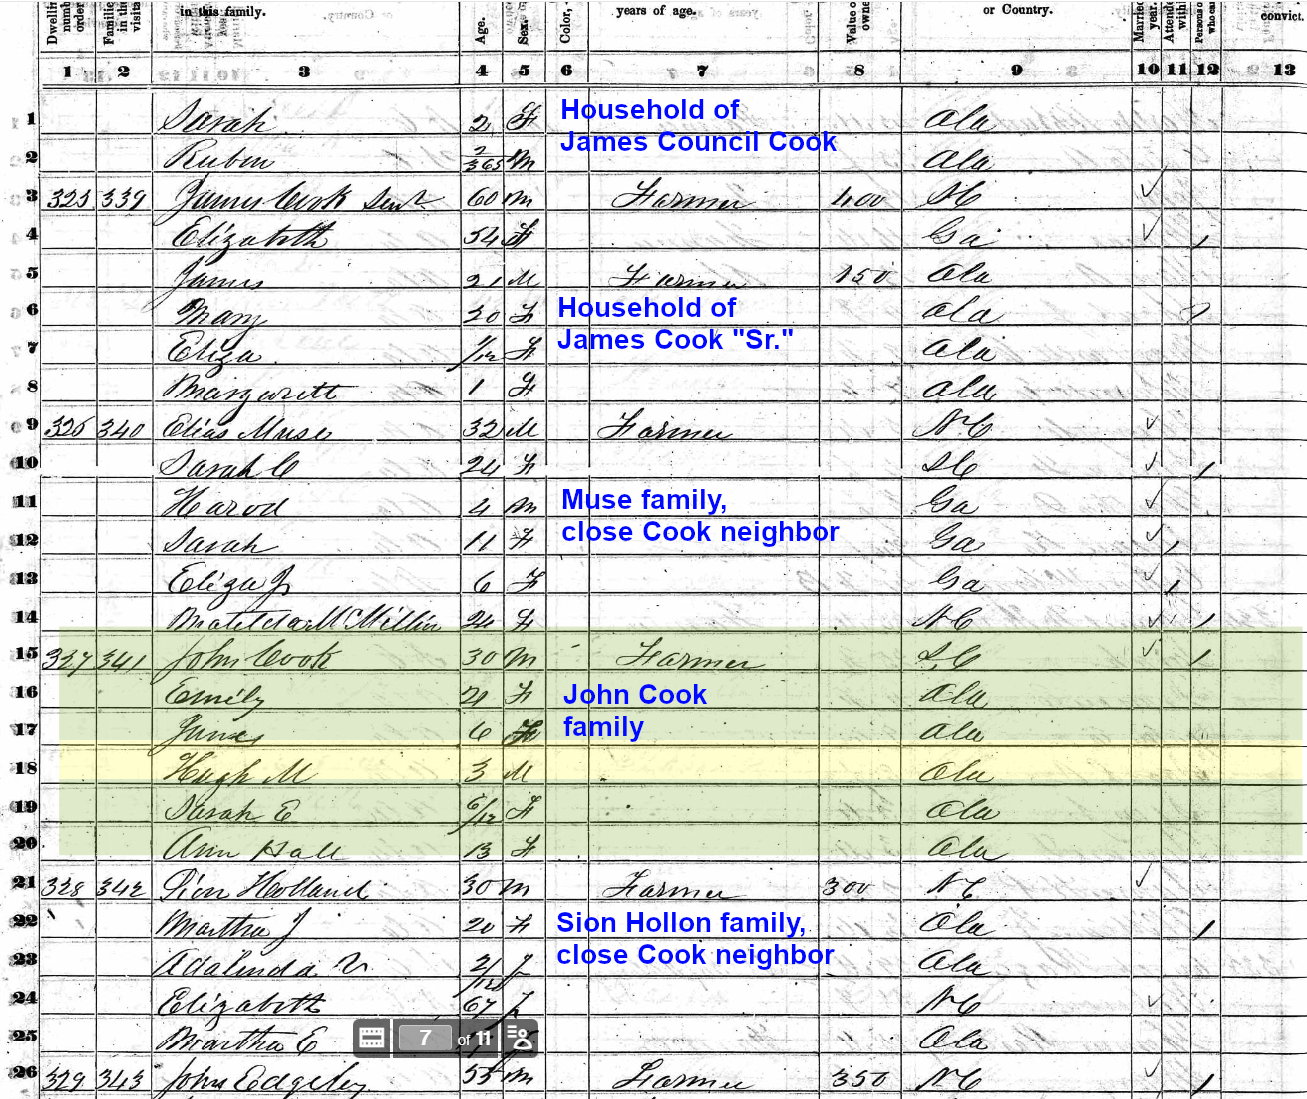 Dwelling order
Families in the visita
in this family.
Age.
Sex.
Color,
years of age.
Value o owne
or Country.
Married year.
Attend with
Persons who can
convict.
1 2 3 4 5 6 7 8 9 10 11 12 13
1 Sarah 2 F Ala
Household of
James Council Cook
2 Rubin 2/365 M Ala
3 325 339 James Cook Senr 60 M Farmer 400 SC
4 Elizabeth 54 F Ga 1
5 James 21 M Farmer 150 Ala
6 Mary 20 F Ala
Household of
James Cook "Sr."
7 Eliza 1/12 F Ala
8 Margarett 1 F Ala
9 326 340 Elias Muse 32 M Farmer NC
10 Sarah C 24 F SC 1
11 Harod 4 M Ga
Muse family,
close Cook neighbor
12 Sarah 11 F Ga 1
13 Eliza J 6 F Ga 1
14 Matilda McMillin 24 F NC 1
15 327 341 John Cook 30 M Farmer S.C 1
16 Emily 21 F Ala
John Cook
family
17 James 6 Ala
18 Hugh M 3 M Ala
19 Sarah E 6/12 F Ala
20 Ann Hall 13 F Ala
21 328 342 Sion Holland 30 M Farmer 300 NC
22 Martha J 20 F Ala 1
Sion Hollon family,
close Cook neighbor
23 Adalinda V 2/12 F Ala
24 Elizabeth 67 F NC
25 Martha E Ala
7 of 11
26 329 343 John Edgeley 55 M Farmer 350 NC 1